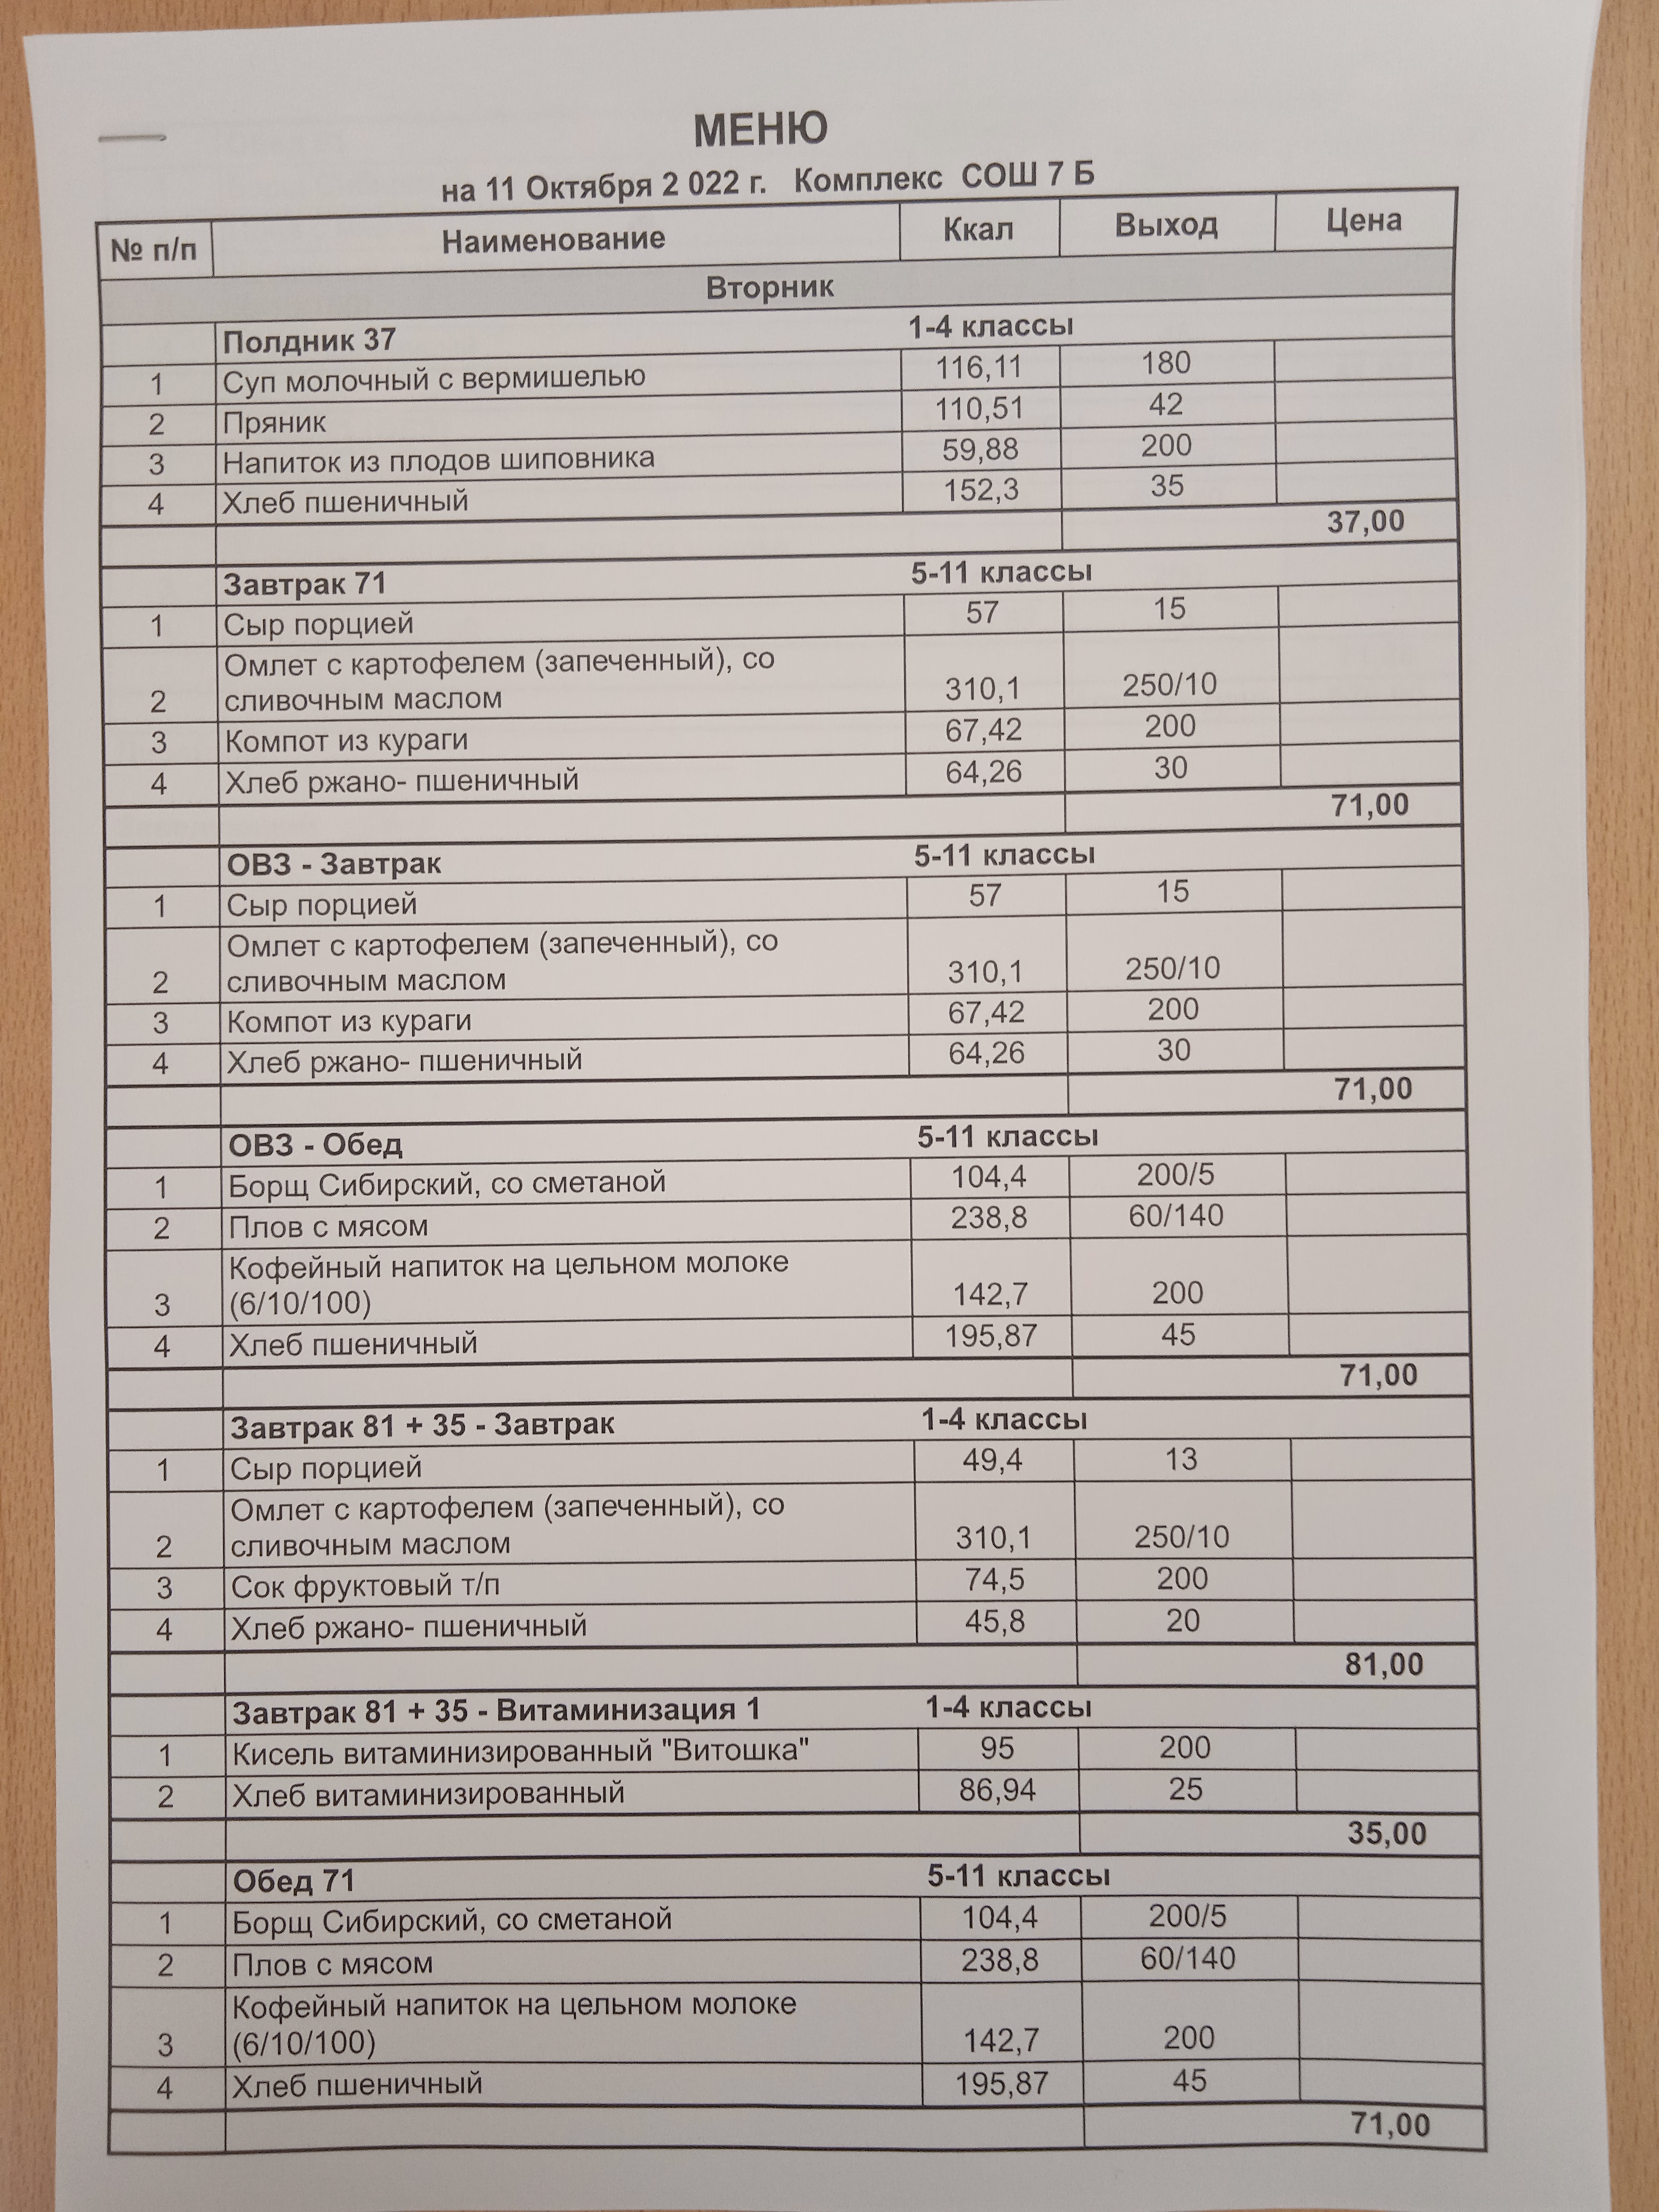 МЕНЮ
на 11 Октября 2 022 г. Комплекс СОШ 7 Б
№ п/п Наименование Ккал Выход Цена
Вторник
Полдник 37 1-4 классы
1 Суп молочный с вермишелью 116,11 180
2 Пряник 110,51 42
3 Напиток из плодов шиповника 59,88 200
4 Хлеб пшеничный 152,3 35
37,00
Завтрак 71 5-11 классы
1 Сыр порцией 57 15
Омлет с картофелем (запеченный), со
2 сливочным маслом 310,1 250/10
3 Компот из кураги 67,42 200
4 Хлеб ржано- пшеничный 64,26 30
71,00
ОВЗ - Завтрак 5-11 классы
1 Сыр порцией 57 15
Омлет с картофелем (запеченный), со
2 сливочным маслом 310,1 250/10
3 Компот из кураги 67,42 200
4 Хлеб ржано- пшеничный 64,26 30
71,00
ОВЗ - Обед 5-11 классы
1 Борщ Сибирский, со сметаной 104,4 200/5
2 Плов с мясом 238,8 60/140
Кофейный напиток на цельном молоке
3 (6/10/100) 142,7 200
4 Хлеб пшеничный 195,87 45
71,00
Завтрак 81 + 35 - Завтрак 1-4 классы
1 Сыр порцией 49,4 13
Омлет с картофелем (запеченный), со
2 сливочным маслом 310,1 250/10
3 Сок фруктовый т/п 74,5 200
4 Хлеб ржано- пшеничный 45,8 20
81,00
Завтрак 81 + 35 - Витаминизация 1 1-4 классы
1 Кисель витаминизированный "Витошка" 95 200
2 Хлеб витаминизированный 86,94 25
35,00
Обед 71 5-11 классы
1 Борщ Сибирский, со сметаной 104,4 200/5
2 Плов с мясом 238,8 60/140
Кофейный напиток на цельном молоке
3 (6/10/100) 142,7 200
4 Хлеб пшеничный 195,87 45
71,00